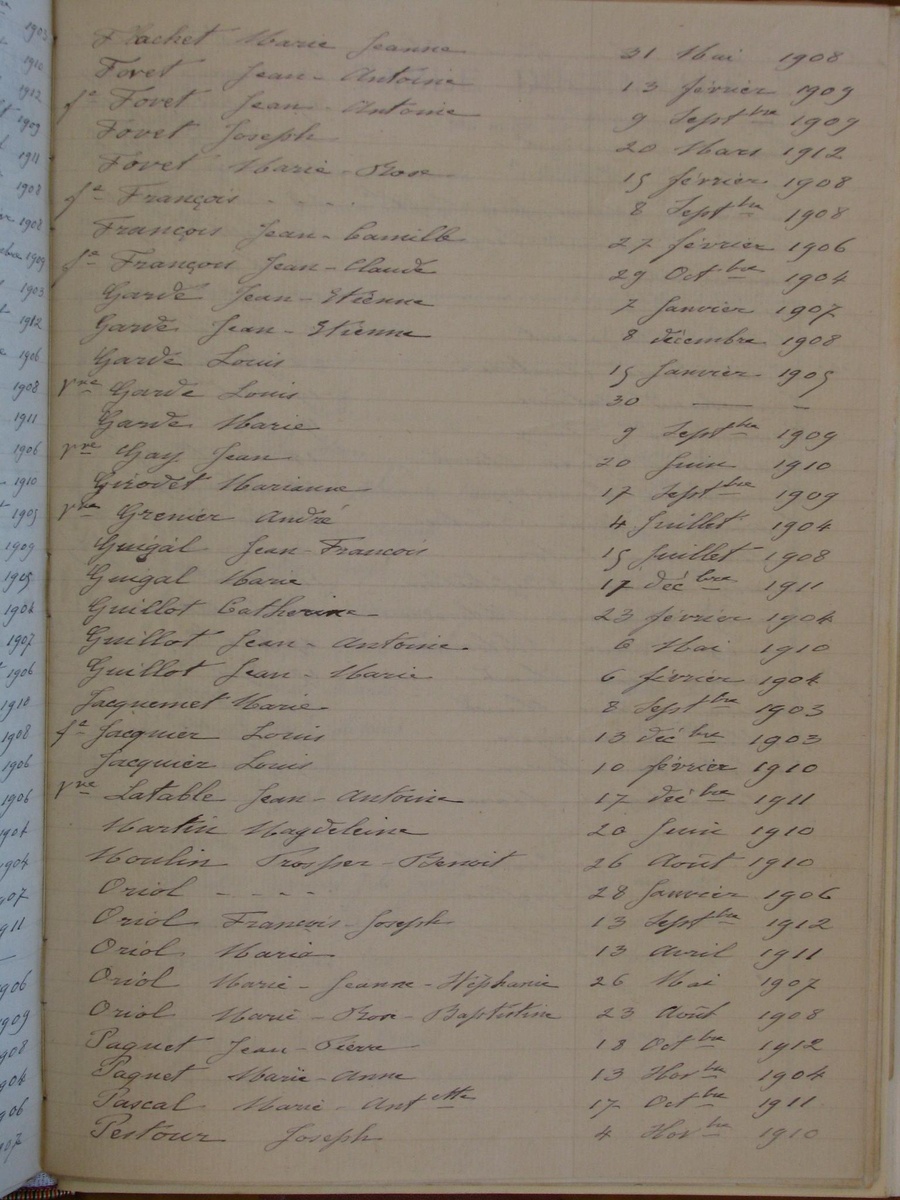 Flachet Marie Jeanne 31 Mai 1908
Fovet Jean-Antoine 13 février 1909
fe Fovet Jean-Antoine 9 Septbre 1909
Fovet Joseph 20 Mars 1912
Fovet Marie-Rose 15 février 1908
fe François - - - - 8 Septbre 1908
François Jean-Camille 27 février 1906
fe François Jean-Claude 29 Octbre 1904
Garde Jean-Etienne 7 Janvier 1907
Garde Jean-Etienne 8 décembre 1908
Garde Louis 15 Janvier 1905
vve Garde Louis 30 — -
Garde Marie 9 Septbre 1909
vve Gay Jean 20 Juin 1910
Girodet Marianne 17 Septbre 1909
vve Grenier André 4 Juillet 1904
Guigal Jean-François 15 Juillet 1908
Guigal Marie 17 décbre 1911
Guillot Catherine 23 février 1904
Guillot Jean-Antoine 6 Mai 1910
Guillot Jean-Marie 6 février 1904
Jacquemet Marie 8 Septbre 1903
fe Jacquier Louis 13 décbre 1903
Jacquier Louis 10 février 1910
vve Latable Jean-Antoine 17 décbre 1911
Martin Magdeleine 20 Juin 1910
Moulin Prosper-Benoit 26 Août 1910
Oriol - - - - 28 Janvier 1906
Oriol François-Joseph 13 Septbre 1912
Oriol Maria 13 Avril 1911
Oriol Marie-Jeanne-Stéphanie 26 Mai 1907
Oriol Marie-Rose-Baptistine 23 Août 1908
Paquet Jean-Pierre 18 Octbre 1912
Paquet Marie-Anne 13 Novbre 1904
Pascal Marie-Antette 17 Octbre 1911
Pestour Joseph 4 Novbre 1910